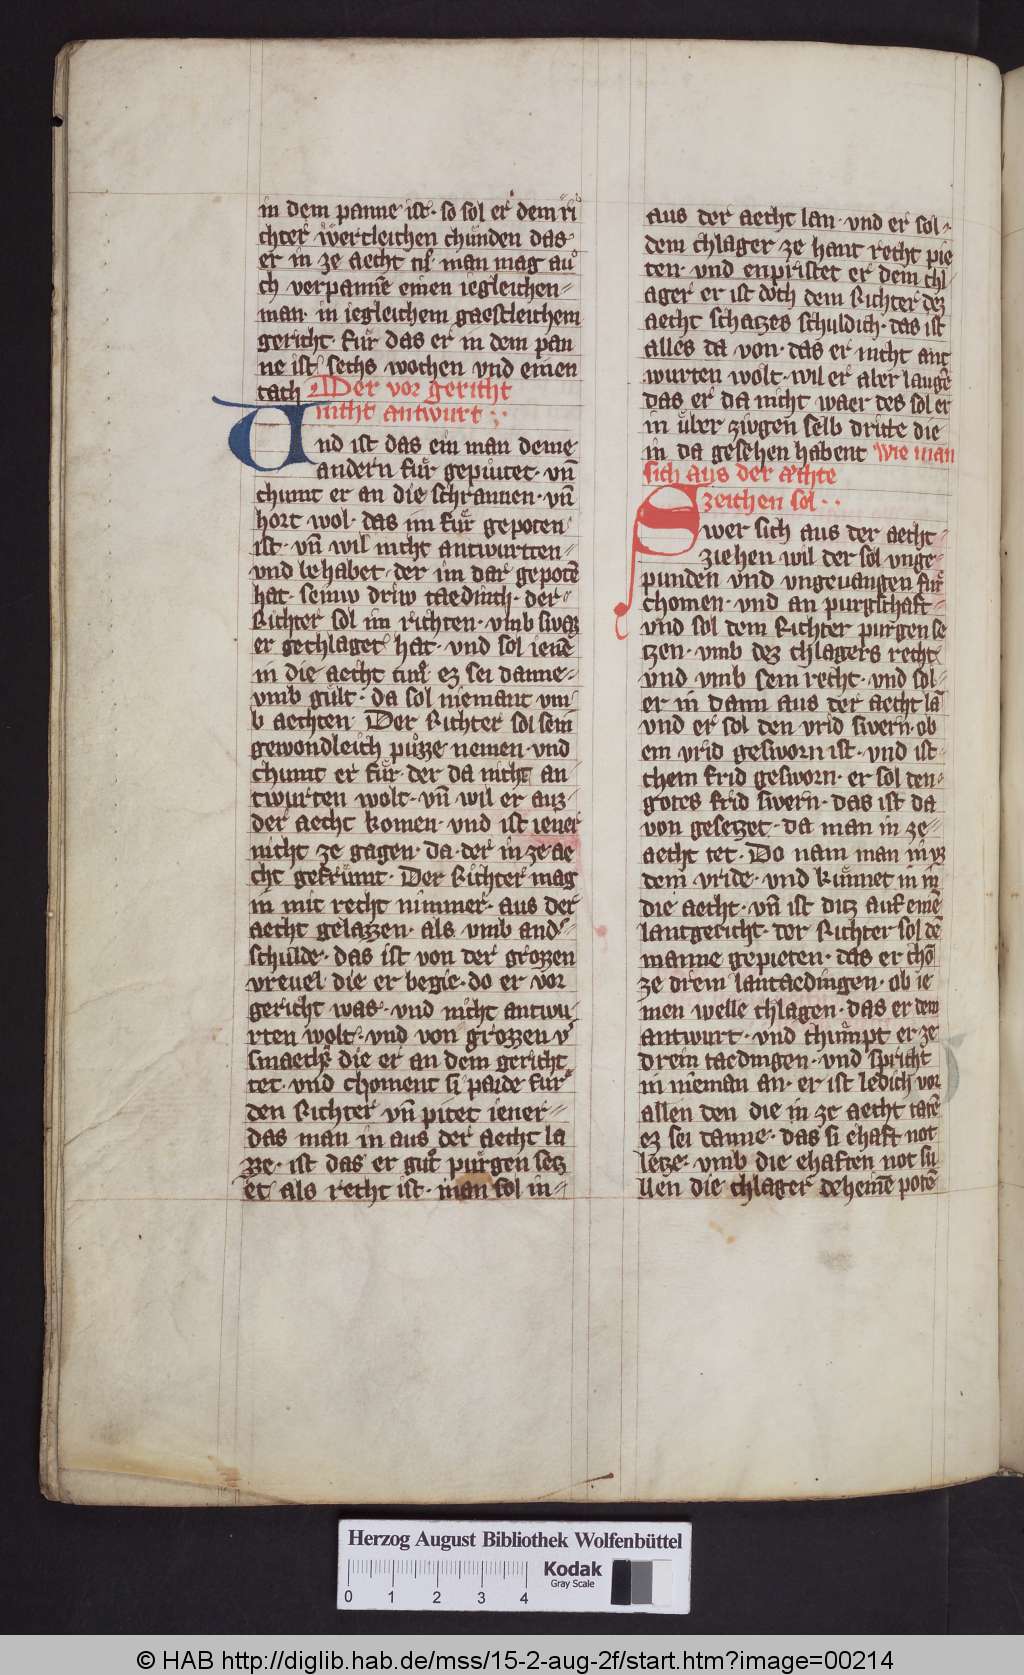 in dem panne ist · so sol er dem ri
chter wertleichen chunden das
er in ze aecht tů · man mag au
ch verpanne einen iegleichen
man · in iegleichem gaestleichem
gericht · für das er in dem pan
ne ist sechs wochen vnd einen
tach Der vor gericht
nicht antwurt ·:
Und ist das ein man deme
andern für gepiutet · vn̄
chumt er an die schrannen · vn̄
hort wol · das im für gepoten
ist · vn̄ wil nicht antwurtten
vnd behabet · der im dar gepotē
hat · seiniv driw taedinch · der
Richter sol im richten · vmb swaz
er gechlaget hat · vnd sol ienē
in die aecht tun · ez sei danne
vmb gült · da sol niemant vm
b aechten · Der Richter sol sein
gewondleich püzze nemen · vnd
chumt er für · der da nicht an
twurten wolt · vn̄ wil er auz
der aecht komen · vnd ist iener
nicht ze gagen · da · der in ze ae
cht gefrümt · Der Richter mag
in mit recht nimmer · aus der
aecht gelazzen · als vmb and
schulde · das ist von der grozzen
vreuel · die er begie · do er vor
gericht was · vnd nicht antwu
rten wolt · vnd von grozzen v
smaeche die er an dem gericht
tet · vnd choment si paide für
den Richter vn̄ pitet iener
das man in aus der aecht la
zze · ist das er gut pürgen setz
et als recht ist · man sol in
aus der aecht lan · vnd er sol
dem chlager ze hant recht pie
ten · vnd enpristet er dem chl
ager er ist doch dem Richter dez
aecht schatzes schuldich · das ist
alles da von · das er nicht ant
wurten wolt · wil er aber laugē
das er da nicht waer des sol er
in über ziugen selb dritte die
in da gesehen habent wie man
sich aus der aechte
zeichen sol ··
Swer sich aus der aecht
ziehen wil der sol vnge
punden vnd vngeuangen für
chomen · vnd an purgschaft
vnd sol dem Richter purgen se
tzen · vmb dez chlagers recht
vnd vmb sein recht · vnd sol
er in dann aus der aecht lā
vnd er sol den vrid swern · ob
ein vrid gesworn ist · vnd ist
chein frid gesworn · er sol den
gotes frid swern · das ist da
von gesetzet · da man in ze
aecht tet · Do nam man in vz
dem vride · vnd kunnet in in
die aecht · vn̄ ist ditz auf einē
lantgericht · der Richter sol dē
manne gepieten · das er chō
ze drein lantaedingen · ob ie
men welle chlagen · das er dem
antwurt · vnd chümpt er ze
drein taedingen · vnd spricht
in nieman an · er ist ledich vor
allen den die in ze aecht tatē
ez sei danne · das si ehaft not
letze · vmb die ehaften not su
llen die chlager deheinē potē
Herzog August Bibliothek Wolfenbüttel
Kodak
Gray Scale
0 1 2 3 4
© HAB http://diglib.hab.de/mss/15-2-aug-2f/start.htm?image=00214